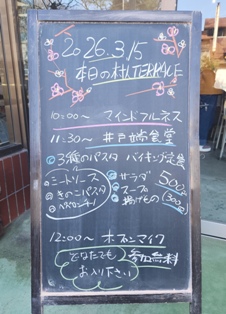 2026.3/5
本日の村TERRACE
10:00〜 マインドフルネス
11:30〜 井戸端食堂
◎3種のパスタ バイキング定食
◎ミートソース
◎きのこパスタ
◎サラダ
◎スープ
◎揚げもの
500円
(300円)
12:00〜 オープンマイク
どなたでも
お入り下さい
参加無料